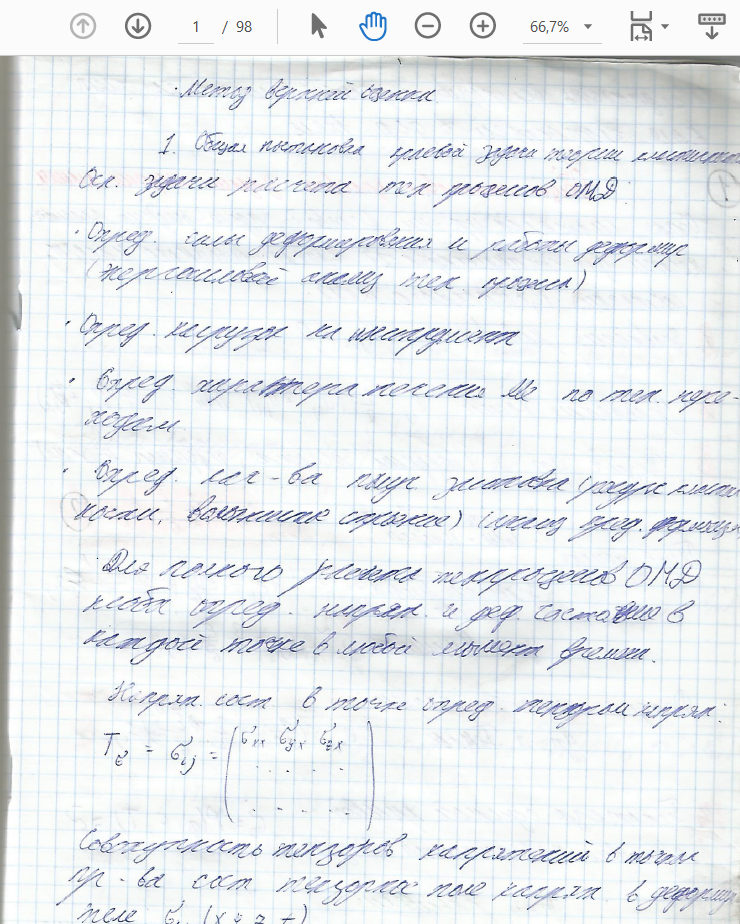 1 / 98 66,7%
Метод верхней оценки
1. Общая постановка краевой задачи теории пластичност
Осн. задачи расчета тех процессов ОМД:
· Опред. силы деформирования и работы деформир
(энергосиловой анализ тех. процесса)
· Опред. нагрузок на инструмент
· Опред. характера течения Ме по тех. пере-
ходам
· Опред. кач-ва получ (ресурс пласти
ности, строение) (анализ пред.
Для полного расчета техпроцессов ОМД
надо опред. напряж. и деф. состояние в
каждой точке в любой момент времени.
Напряж. сост. в точке опред. тензором напряж:
T_σ = σ_ij = ( σ_xx σ_yx σ_zx
. . . .
. . . . )
Совокупность тензоров напряжений в точках
пр-ва сост тензорное поле напряж в деформир
теле σ_ij (x y z t)